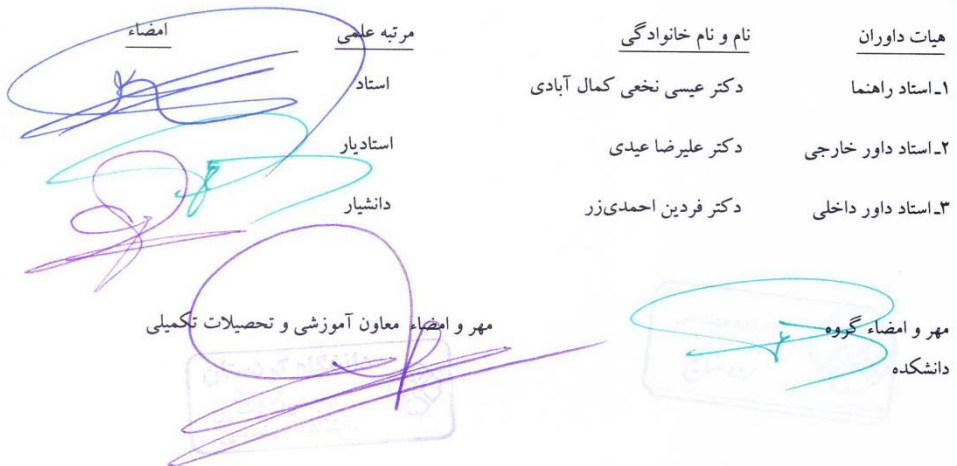 هیات داوران نام و نام خانوادگی مرتبه علمی امضاء
۱ـ استاد راهنما دکتر عیسی نخعی کمال آبادی استاد
۲ـ استاد داور خارجی دکتر علیرضا عیدی استادیار
۳ـ استاد داور داخلی دکتر فردین احمدی‌زر دانشیار
مهر و امضاء گروه مهر و امضاء معاون آموزشی و تحصیلات تکمیلی
دانشکده